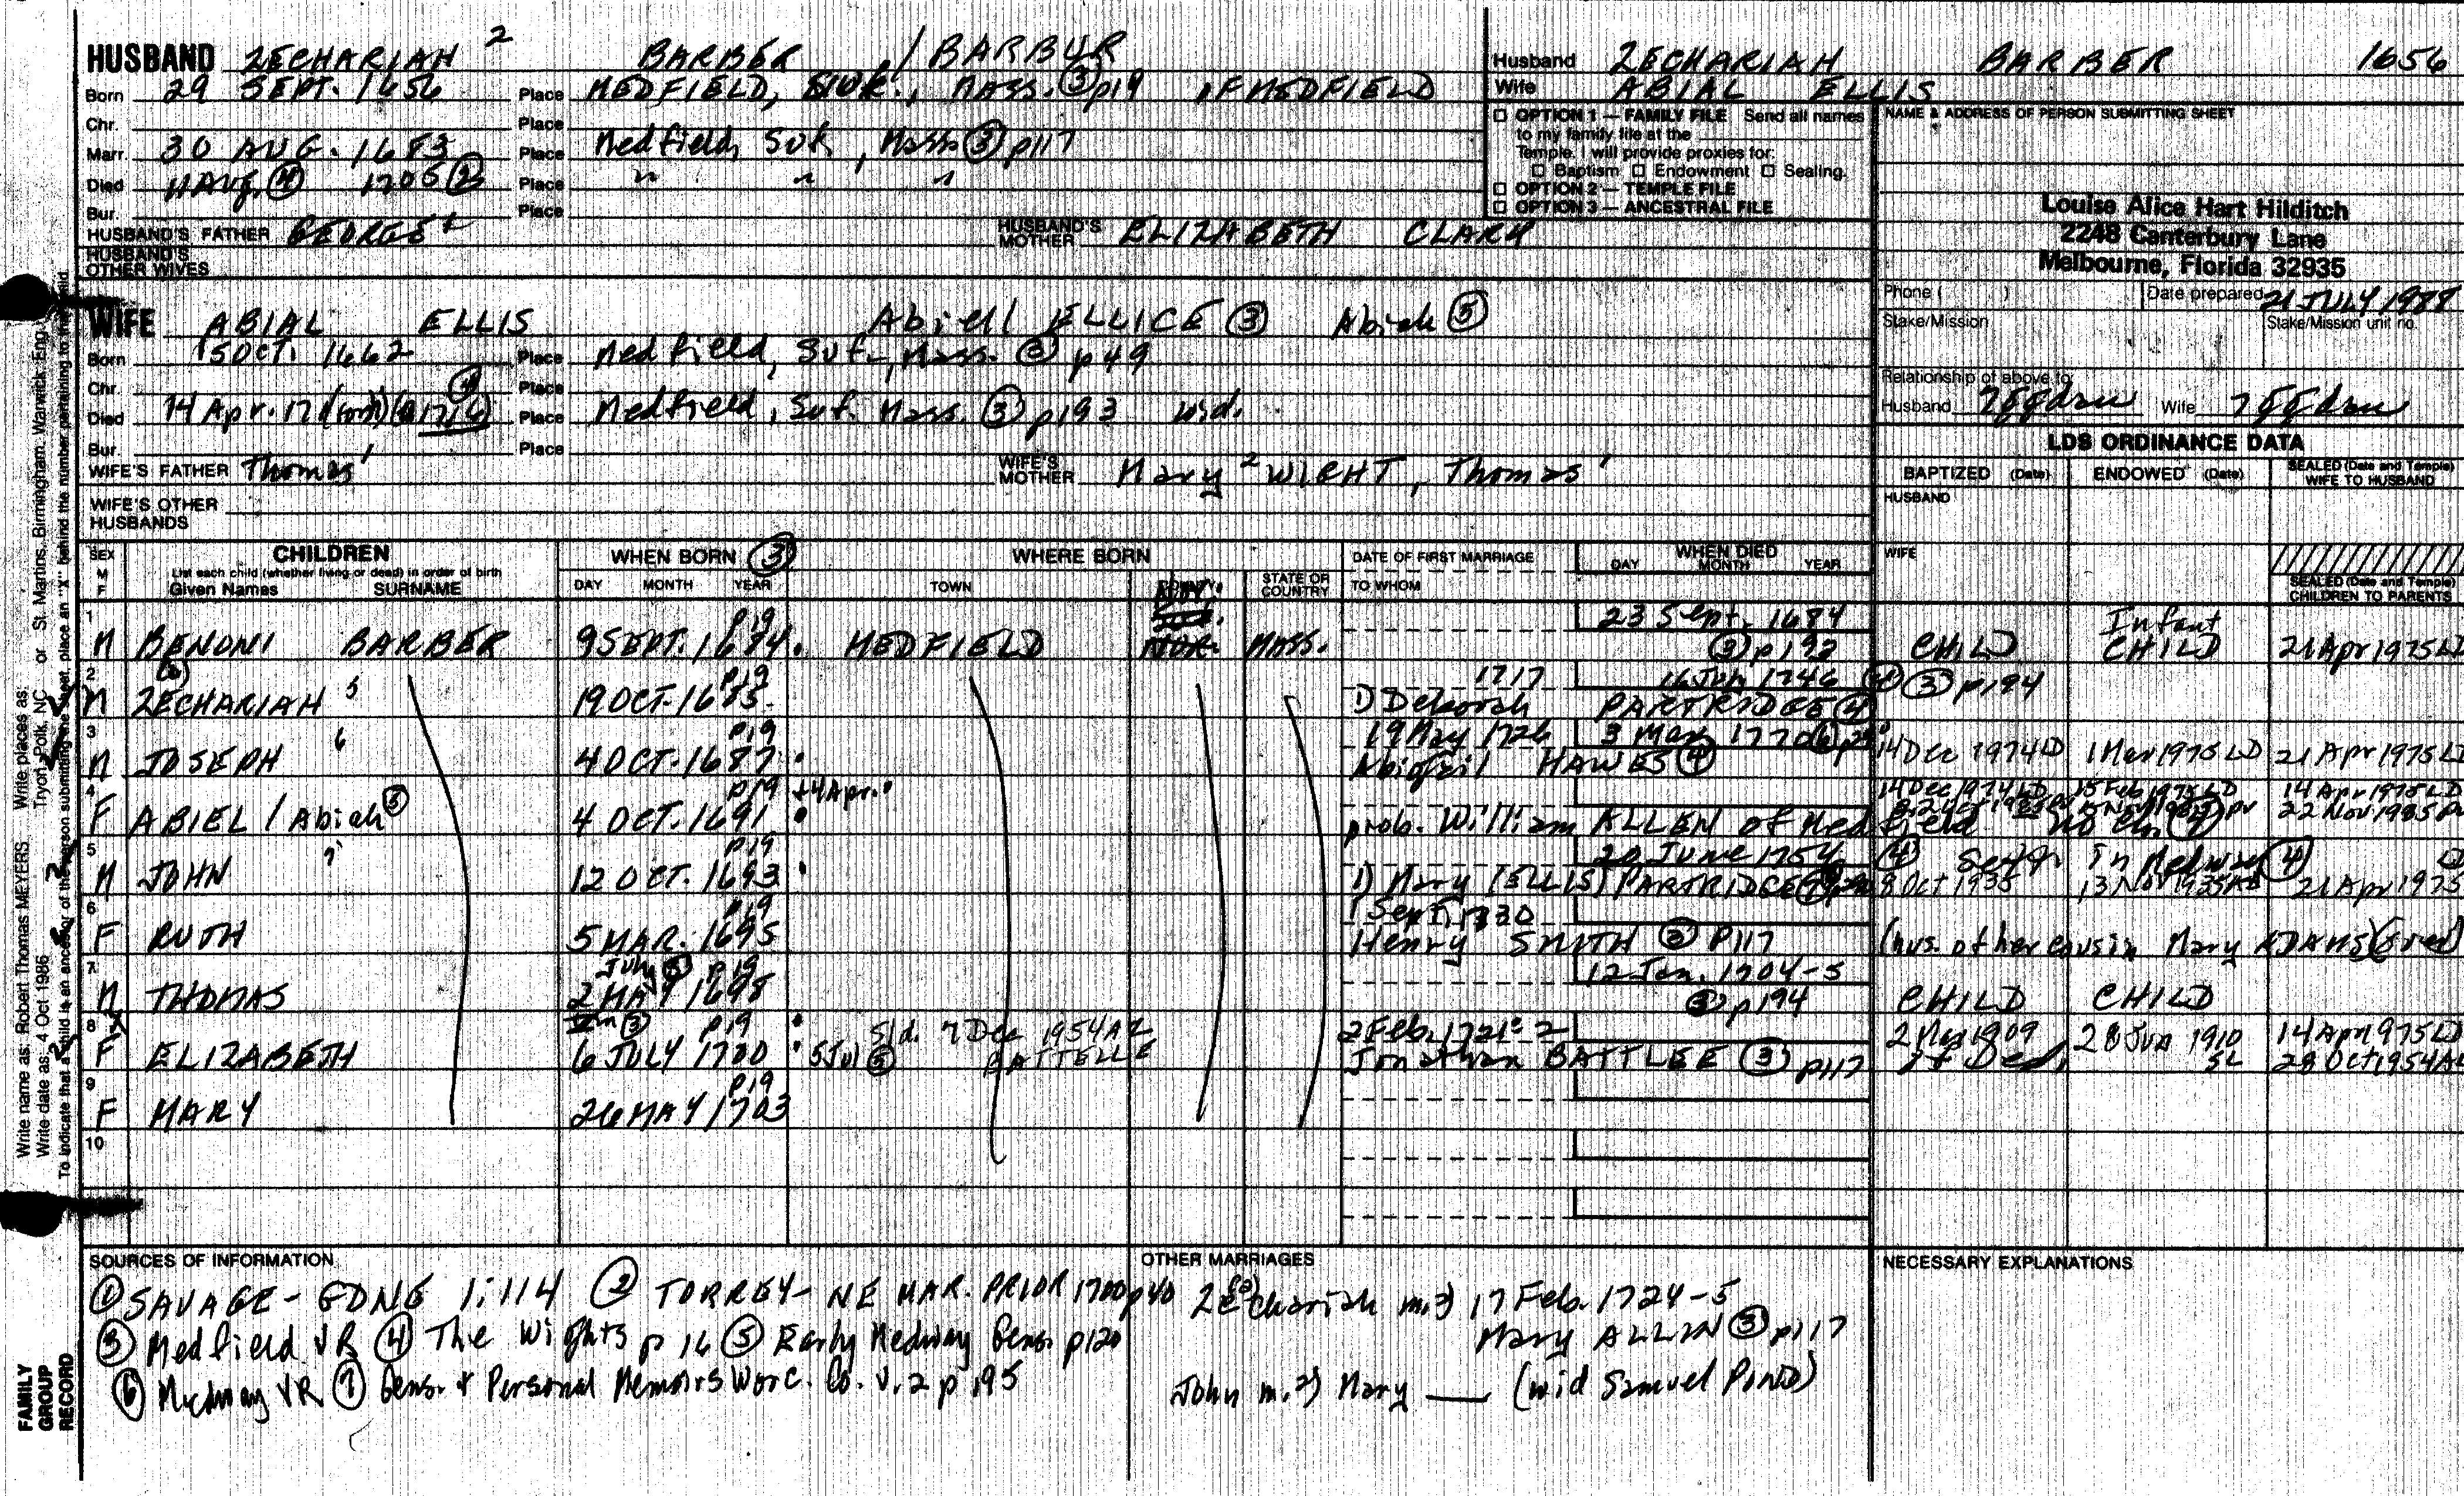 HUSBAND ZECHARIAH 2 BARBER / BARBUR
Born 29 SEPT. 1656 Place MEDFIELD, SUF., MASS. ③ p19 OF MEDFIELD
Chr. Place
Marr. 30 AUG. 1683 Place Medfield, Suf, Mass ③ p117
Died 11 Aug. ④ 1705 ② Place " " "
Bur. Place
HUSBAND'S FATHER GEORGE HUSBAND'S MOTHER ELIZABETH CLARK
HUSBAND'S OTHER WIVES
WIFE ABIAL ELLIS Abiell ELLICE ③ Abiah ⑤
Born 15 OCT. 1662 Place Medfield, Suf., Mass. ③ p49
Chr. Place
Died 14 Apr. 17 (1716) ④ Place Medfield, Suf. Mass. ③ p193 wid.
Bur. Place
WIFE'S FATHER Thomas 1 WIFE'S MOTHER Mary 2 WIGHT, Thomas 1
WIFE'S OTHER HUSBANDS
Husband ZECHARIAH BARBER 1656
Wife ABIAL ELLIS
☐ OPTION 1 — FAMILY FILE Send all names
to my family file at the
Temple. I will provide proxies for:
☐ Baptism ☐ Endowment ☐ Sealing.
☐ OPTION 2 — TEMPLE FILE
☐ OPTION 3 — ANCESTRAL FILE
NAME & ADDRESS OF PERSON SUBMITTING SHEET
Louise Alice Hart Hilditch
2248 Canterbury Lane
Melbourne, Florida 32935
Phone ( ) Date prepared 21 JULY 1988
Stake/Mission Stake/Mission unit no.
Relationship of above to:
Husband 7ggdau Wife 7ggdau
LDS ORDINANCE DATA
BAPTIZED (Date) ENDOWED (Date) SEALED (Date and Temple) WIFE TO HUSBAND
HUSBAND
WIFE
SEALED (Date and Temple) CHILDREN TO PARENTS
SEX M F
CHILDREN
List each child (whether living or dead) in order of birth
Given Names SURNAME
WHEN BORN ③
DAY MONTH YEAR
WHERE BORN
TOWN STATE OR COUNTRY
DATE OF FIRST MARRIAGE
TO WHOM
WHEN DIED
DAY MONTH YEAR
1 p19 23 Sept. 1684 Infant
M BENONI BARBER 9 SEPT. 1684. MEDFIELD NOR. MASS. ③ p192 CHILD CHILD 21 Apr 1975 LD
2 (a) p19 1717 16 Jun 1746 ④ ③ p194
M ZECHARIAH 5 19 OCT. 1685. 1) Deborah PARTRIDGE ④
3 p19 19 May 1726 3 Mar 1770 ⑥
M JOSEPH 6 4 OCT. 1687. Abigail HAWES ④ 14 Dec 1974 LD 1 Mar 1975 LD 21 Apr 1975 LD
4 p19 +4 Apr. 14 Dec 1974 LD 15 Feb 1975 LD 14 Apr 1975 LD
F ABIEL / Abiah ⑤ 4 OCT. 1691 prob. William ALLEN of Medfield no ch. 22 Nov 1985
5 p19 20 June 1754 ④ Sett. in Medway ④
M JOHN 7 12 OCT. 1693 1) Mary (ELLIS) PARTRIDGE 8 Oct 1935 13 Nov 1935 21 Apr 1975
6 p19 1 Sept 1730
F RUTH 5 MAR. 1695 Henry SMITH ③ p117 (hus. of her cousin Mary ADAMS
7 July ⑤ p19 12 Jan. 1704-5
M THOMAS 2 MAY 1698 ③ p194 CHILD CHILD
8 X p19 s/d. 7 Dec 1954 AZ 2 Feb. 1721-2 2 Mar 1909 28 Jun 1910 SL 14 Apr 1975 LD
F ELIZABETH 6 JULY 1700 5 Jul ⑤ BATTELLE Jonathan BATTLEE ③ p117 28 Oct 1954 AZ
9 p19
F MARY 26 MAY 1703
10
SOURCES OF INFORMATION
① SAVAGE - GDNE 1:114 ② TORREY - NE MAR. PRIOR 1700 p40
③ Medfield VR ④ The Wights p 16 ⑤ Early Medway Gens. p120
⑥ Medway VR ⑦ Gens. & Personal Memoirs Worc. Co. v. 2 p 195
OTHER MARRIAGES
2 (a) Zechariah m. 2) 17 Feb. 1724-5
Mary ALLIN ③ p117
John m. 2) Mary ___ (wid Samuel POND)
NECESSARY EXPLANATIONS
Write name as: Robert Thomas MEYERS. Write places as: Tryon, Polk, NC or St. Martins, Birmingham, Warwick, Eng.
Write date as: 4 Oct 1986
To indicate that a child is an ancestor of the person submitting the sheet, place an "X" behind the number pertaining to that child.
FAMILY GROUP RECORD